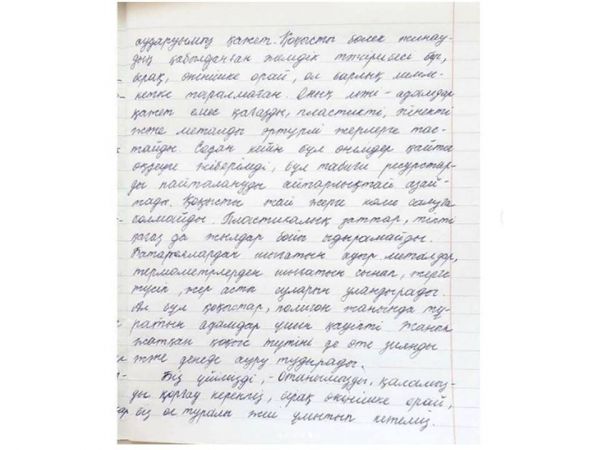 аударуымыз қажет. Қоқысты бөлек жинау-
дың қабылданған әлемдік тәжірибесі бар,
бірақ, өкінішке орай, ол барлық мемле-
кетке таралмаған. Оның мәні - адамдар
қажет емес қағазды, пластикті, әйнекті
және металды әртүрлі жерлерге тас-
тайды. Содан кейін бұл өнімдер қайта
өңдеуге жіберіледі, бұл табиғи ресурстар-
ды пайдалануды айтарлықтай азай-
тады. Қоқысты жай жерге көме салуға
болмайды. Пластикалық заттар, тіпті
қағаз да жылдар бойы ыдырамайды.
Батареялардан шығатын ауыр металдар,
термометрлерден шығатын сынап, жерге
түсіп, жер асты суларын уландырады.
Ал бұл қоқыстар, полигон жанында тұ-
ратын адамдар үшін қауіпті. Жанып
жатқан қоқыс түтіні де өте зиянды
және денеде ауру тудырады.
Біз үйімізді, - Отанымызды, қаламыз-
ды қорғау керекпіз, бірақ өкінішке орай,
біз ол туралы жиі ұмытып кетеміз.